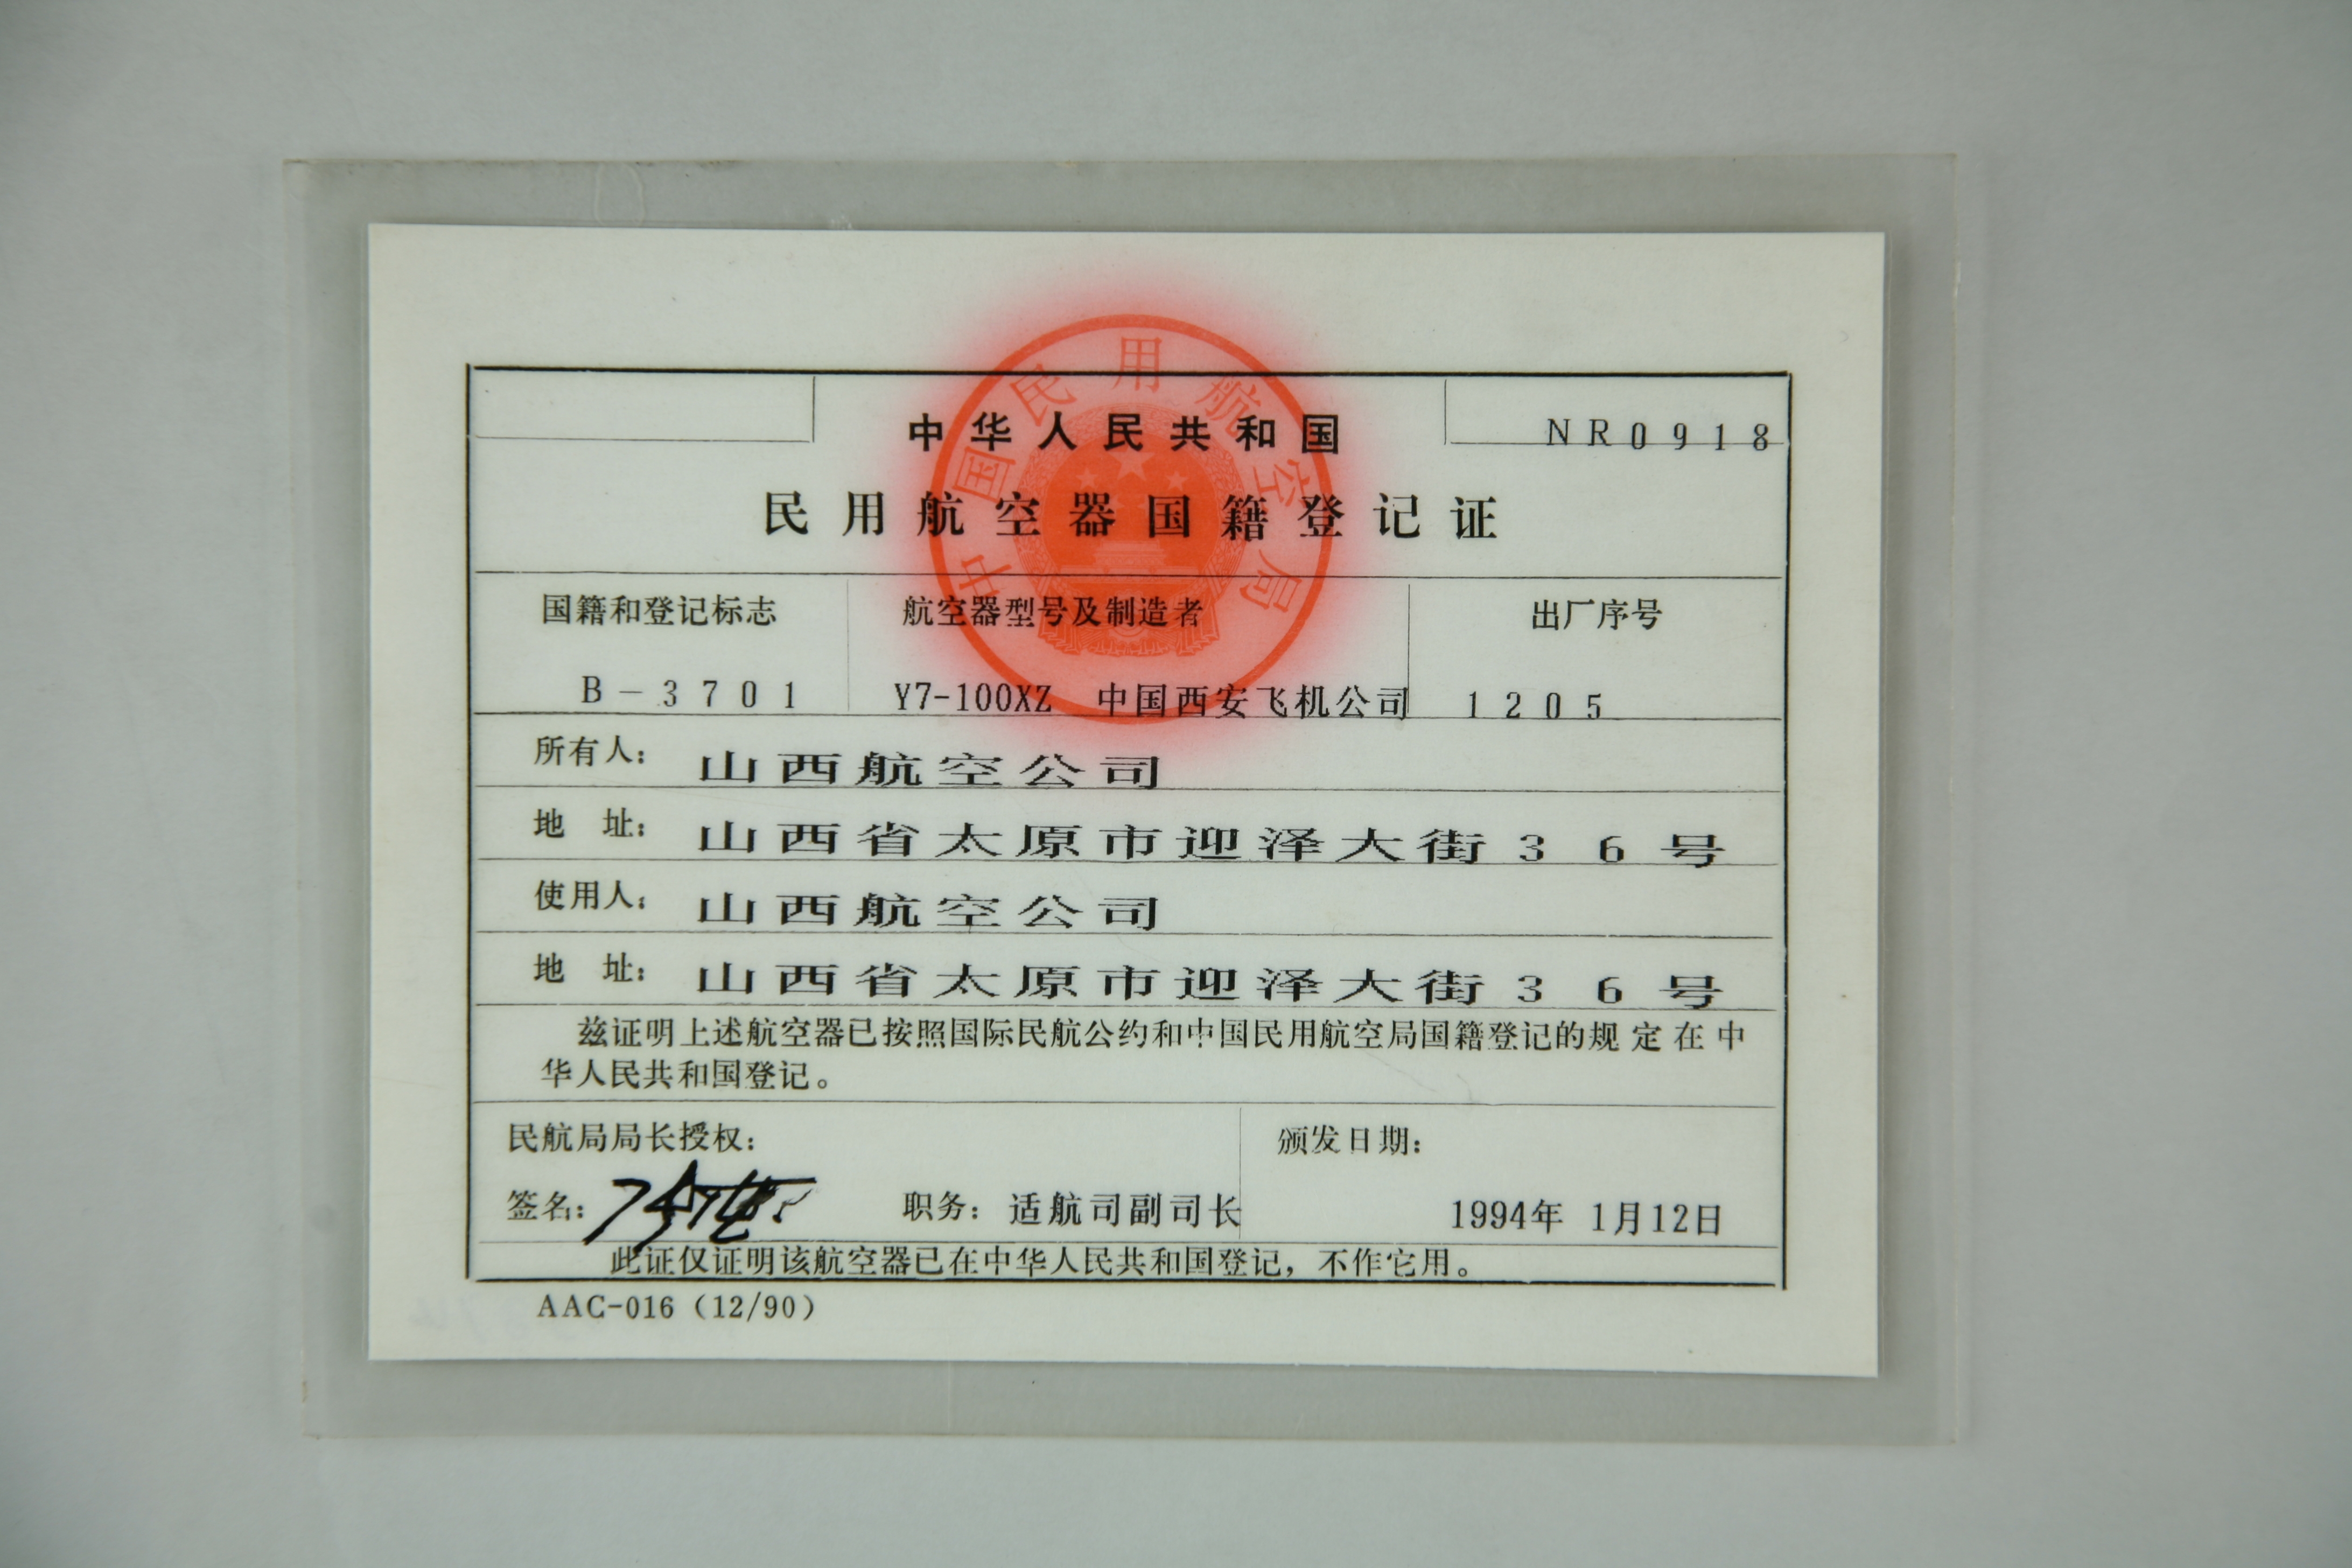 中国民用航空局
中华人民共和国
NR0918
民用航空器国籍登记证
国籍和登记标志 航空器型号及制造者 出厂序号
B-3701 Y7-100XZ 中国西安飞机公司 1205
所有人: 山西航空公司
地 址: 山西省太原市迎泽大街36号
使用人: 山西航空公司
地 址: 山西省太原市迎泽大街36号
兹证明上述航空器已按照国际民航公约和中国民用航空局国籍登记的规定在中
华人民共和国登记。
民航局局长授权: 颁发日期:
签名: 职务: 适航司副司长 1994年 1月12日
此证仅证明该航空器已在中华人民共和国登记,不作它用。
AAC-016 (12/90)